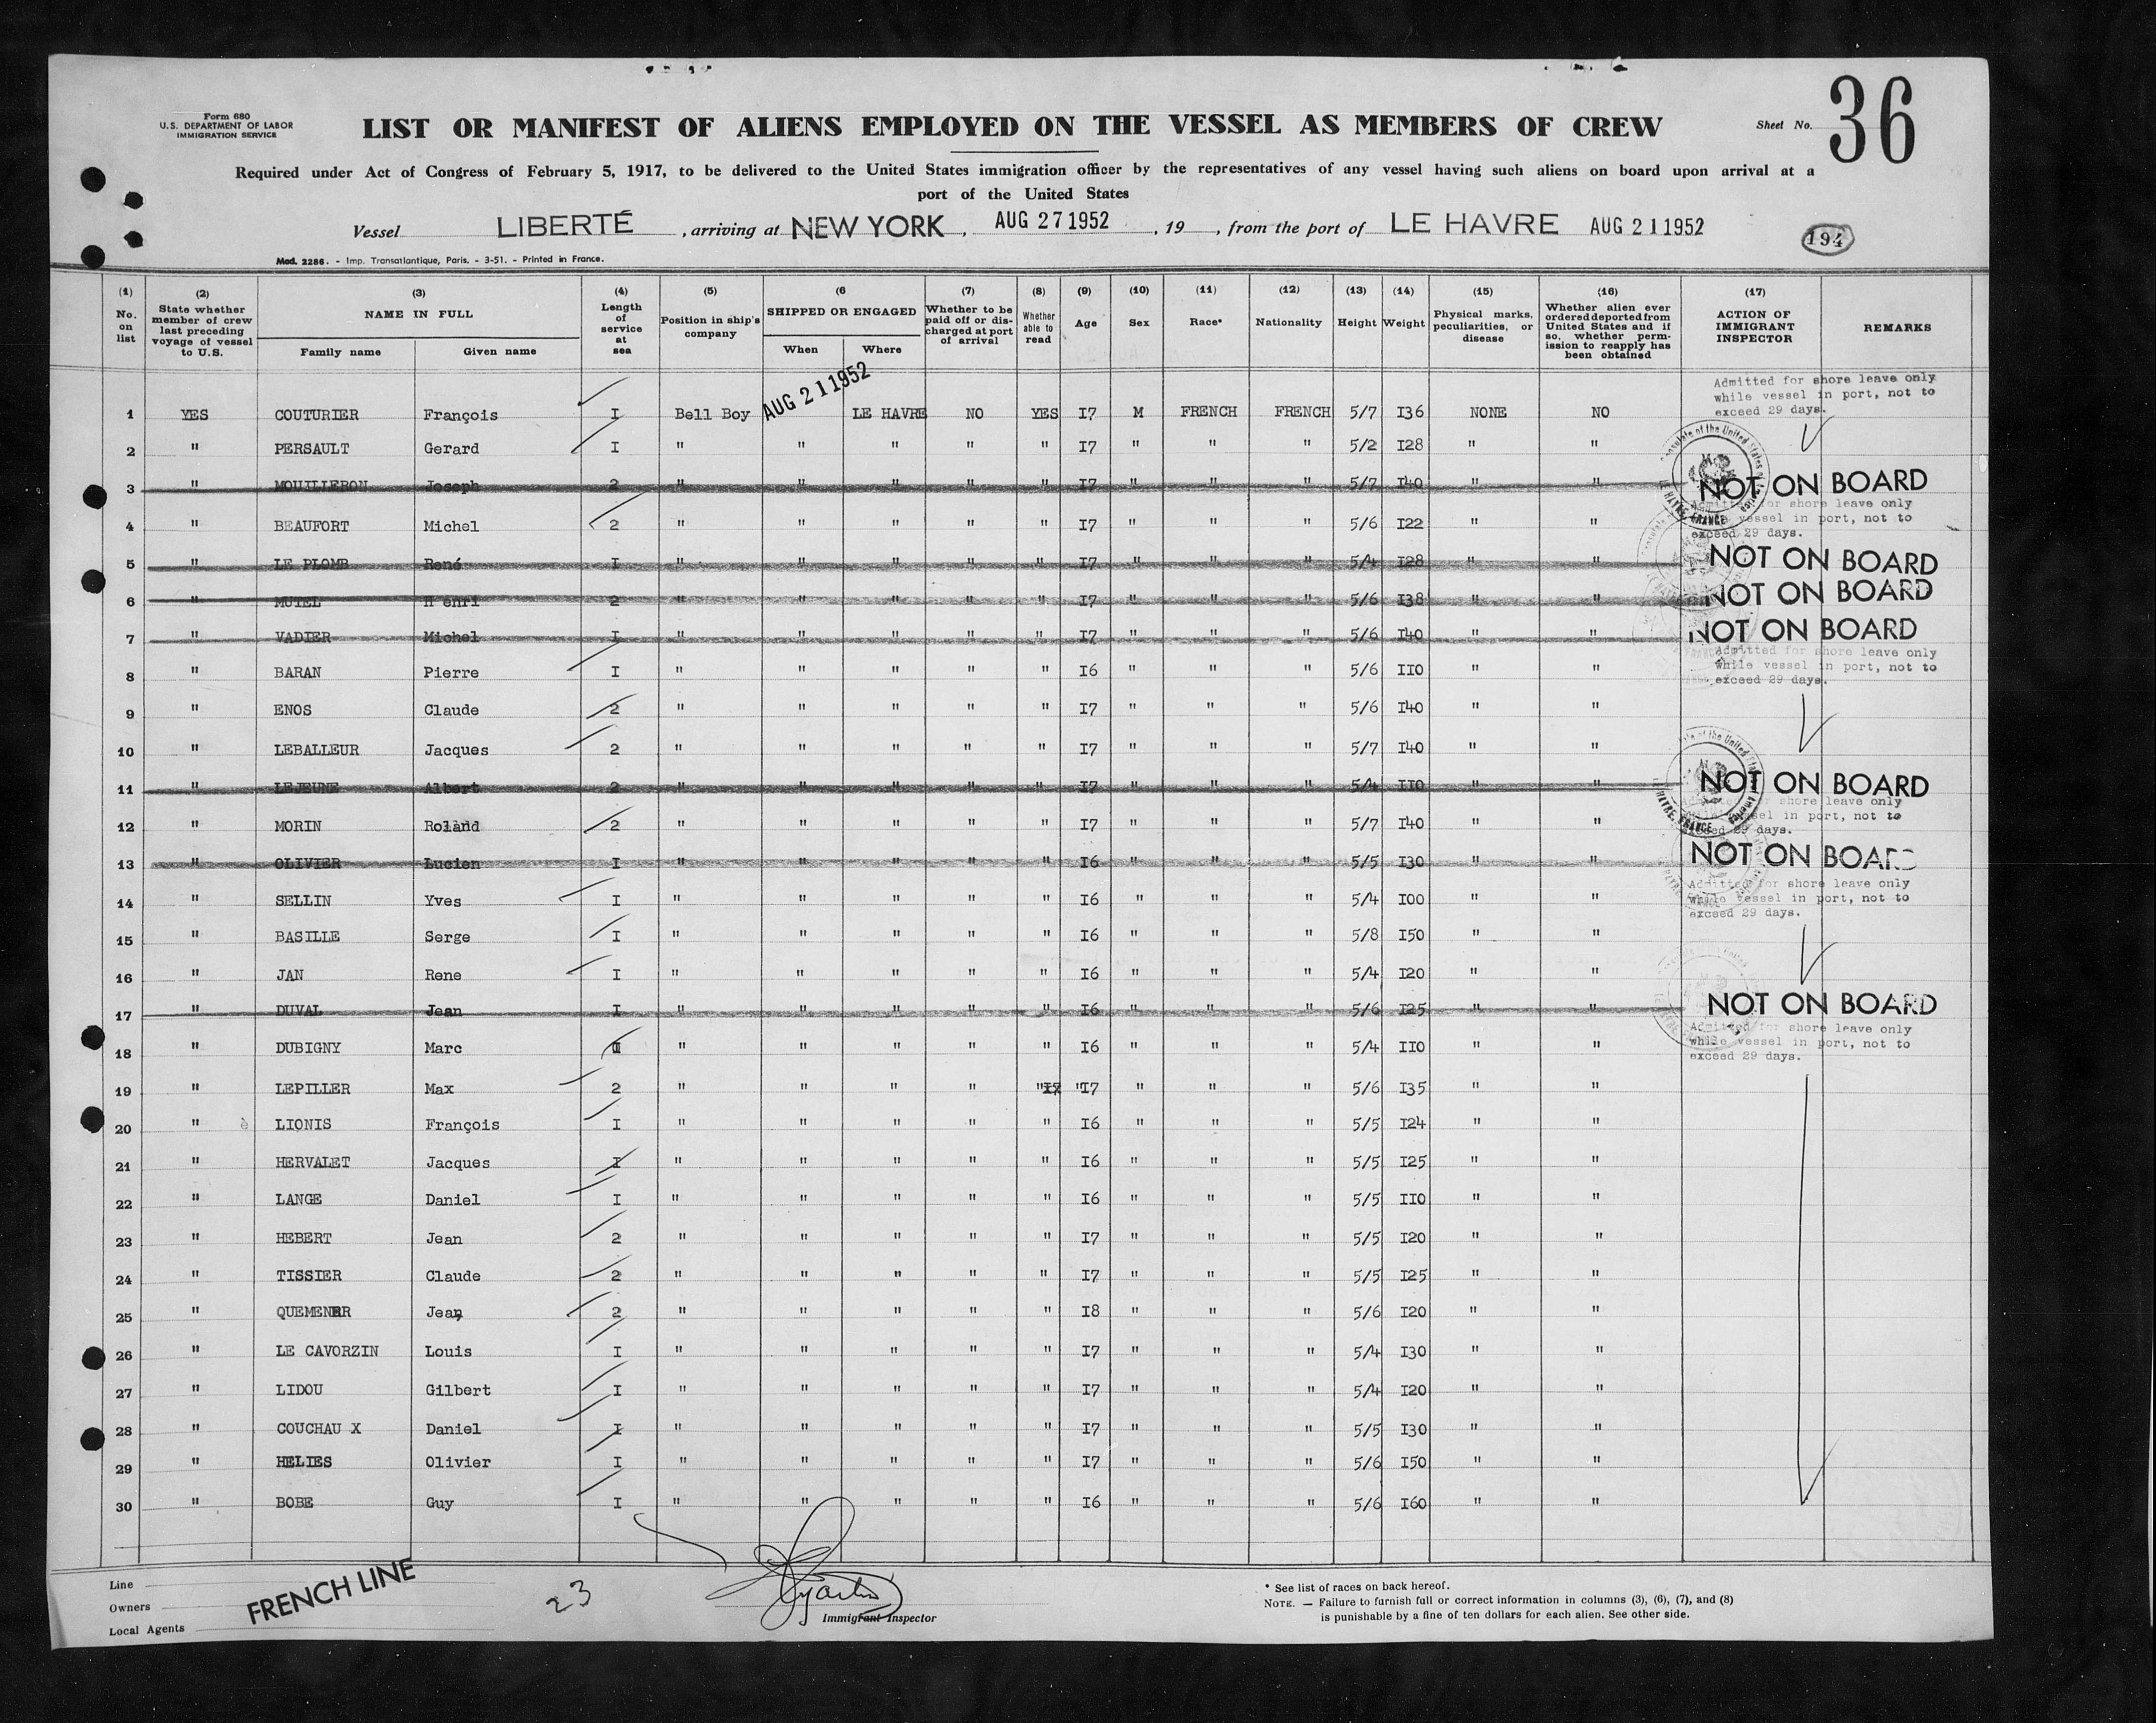 Form 680
U.S. DEPARTMENT OF LABOR
IMMIGRATION SERVICE
LIST OR MANIFEST OF ALIENS EMPLOYED ON THE VESSEL AS MEMBERS OF CREW
Sheet No. 36
Required under Act of Congress of February 5, 1917, to be delivered to the United States immigration officer by the representatives of any vessel having such aliens on board upon arrival at a
port of the United States
Vessel LIBERTÉ, arriving at NEW YORK, AUG 27 1952, 19 , from the port of LE HAVRE AUG 21 1952
194
Mod. 2286. - Imp. Transatlantique, Paris. - 3-51. - Printed in France.
(1) No. on list (2) State whether member of crew last preceding voyage of vessel to U.S. (3) NAME IN FULL Family name Given name (4) Length of service at sea (5) Position in ship's company (6 SHIPPED OR ENGAGED When Where (7) Whether to be paid off or discharged at port of arrival (8) Whether able to read (9) Age (10) Sex (11) Race* (12) Nationality (13) Height (14) Weight (15) Physical marks, peculiarities, or disease (16) Whether alien ever ordered deported from United States and if so, whether permission to reapply has been obtained (17) ACTION OF IMMIGRANT INSPECTOR REMARKS
Admitted for shore leave only
while vessel in port, not to
exceed 29 days.
1 YES COUTURIER François I Bell Boy AUG 21 1952 LE HAVRE NO YES I7 M FRENCH FRENCH 5/7 I36 NONE NO
2 " PERSAULT Gerard I " " " " " I7 " " " 5/2 I28 " "
3 " MOUILLERON Joseph 2 " " " " " I7 " " " 5/7 I40 " " NOT ON BOARD
4 " BEAUFORT Michel 2 " " " " " I7 " " " 5/6 I22 " " Admitted for shore leave only
vessel in port, not to
exceed 29 days.
5 " LE PLOMB René I " " " " " I7 " " " 5/4 I28 " " NOT ON BOARD
6 " MOTEL Henri 2 " " " " " I7 " " " 5/6 I38 " " NOT ON BOARD
7 " VADIER Michel I " " " " " I7 " " " 5/6 I40 " " NOT ON BOARD
8 " BARAN Pierre I " " " " " I6 " " " 5/6 IIO " " Admitted for shore leave only
while vessel in port, not to
exceed 29 days.
9 " ENOS Claude 2 " " " " " I7 " " " 5/6 I40 " "
10 " LEBALLEUR Jacques 2 " " " " " I7 " " " 5/7 I40 " "
11 " LEJEUNE Albert 2 " " " " " I7 " " " 5/4 IIO " " NOT ON BOARD
12 " MORIN Roland 2 " " " " " I7 " " " 5/7 I40 " " shore leave only
vessel in port, not to
exceed 29 days.
13 " OLIVIER Lucien I " " " " " I6 " " " 5/5 I30 " " NOT ON BOARD
14 " SELLIN Yves I " " " " " I6 " " " 5/4 I00 " " Admitted for shore leave only
while vessel in port, not to
exceed 29 days.
15 " BASILLE Serge I " " " " " I6 " " " 5/8 I50 " "
16 " JAN Rene I " " " " " I6 " " " 5/4 I20 " "
17 " DUVAL Jean I " " " " " I6 " " " 5/6 I25 " " NOT ON BOARD
18 " DUBIGNY Marc I " " " " " I6 " " " 5/4 IIO " " Admitted for shore leave only
while vessel in port, not to
exceed 29 days.
19 " LEPILLER Max 2 " " " " " I7 " " " 5/6 I35 " "
20 " è LIONIS François I " " " " " I6 " " " 5/5 I24 " "
21 " HERVALET Jacques I " " " " " I6 " " " 5/5 I25 " "
22 " LANGE Daniel I " " " " " I6 " " " 5/5 IIO " "
23 " HEBERT Jean 2 " " " " " I7 " " " 5/5 I20 " "
24 " TISSIER Claude 2 " " " " " I7 " " " 5/5 I25 " "
25 " QUEMENER Jean 2 " " " " " I8 " " " 5/6 I20 " "
26 " LE CAVORZIN Louis I " " " " " I7 " " " 5/4 I30 " "
27 " LIDOU Gilbert I " " " " " I7 " " " 5/4 I20 " "
28 " COUCHAU X Daniel I " " " " " I7 " " " 5/5 I30 " "
29 " HELIES Olivier I " " " " " I7 " " " 5/6 I50 " "
30 " BOBE Guy I " " " " " I6 " " " 5/6 I60 " "
Line
Owners
Local Agents
FRENCH LINE
23
Immigrant Inspector
* See list of races on back hereof.
NOTE. — Failure to furnish full or correct information in columns (3), (6), (7), and (8)
is punishable by a fine of ten dollars for each alien. See other side.